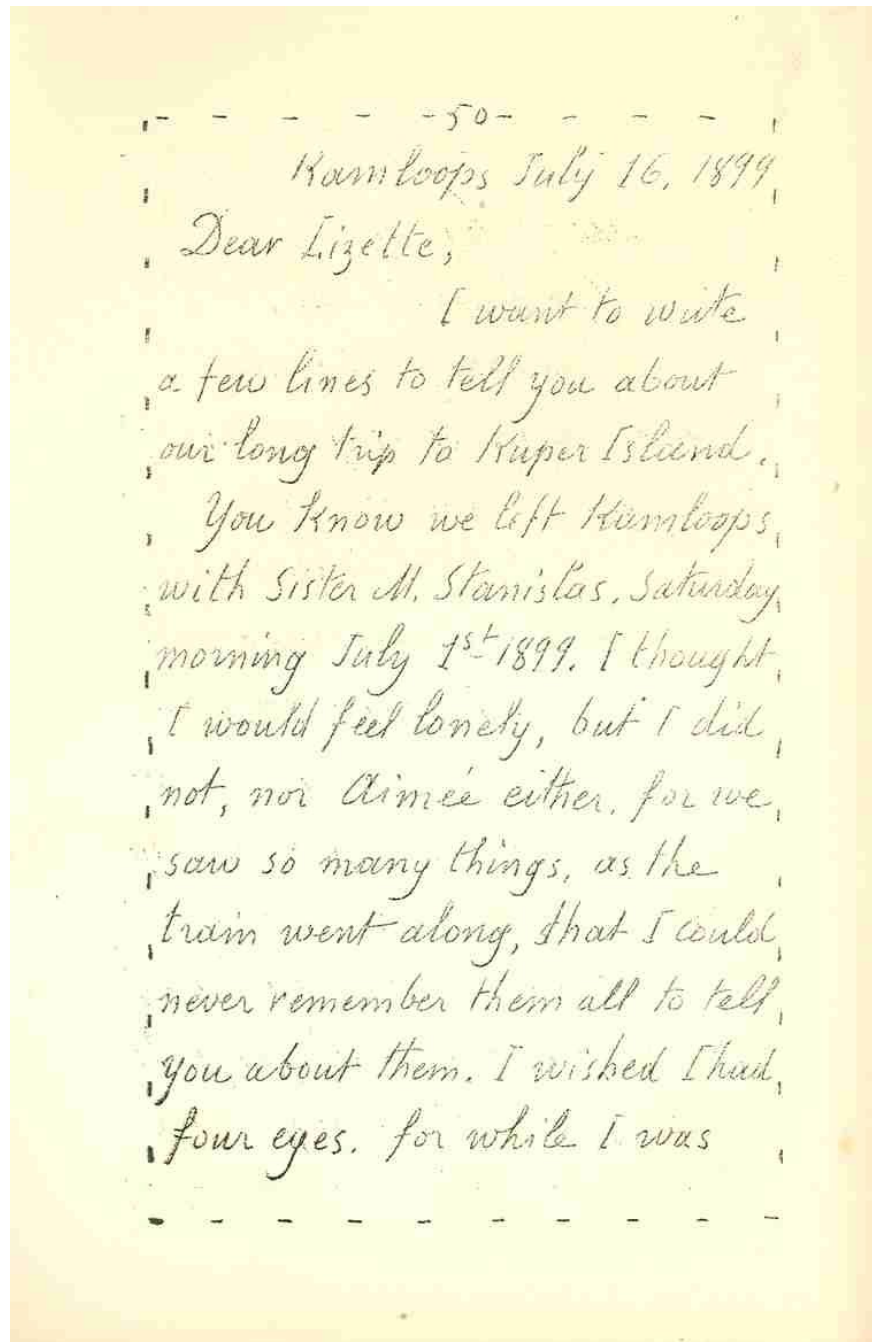 -50-
Kamloops July 16, 1899
Dear Lizette,
I want to write
a few lines to tell you about
our long trip to Kuper Island.
You know we left Kamloops
with Sister M. Stanislas, Saturday
morning July 1st 1899. I thought
I would feel lonely, but I did
not, nor Aimée either, for we
saw so many things, as the
train went along, that I could
never remember them all to tell
you about them. I wished I had
four eyes, for while I was